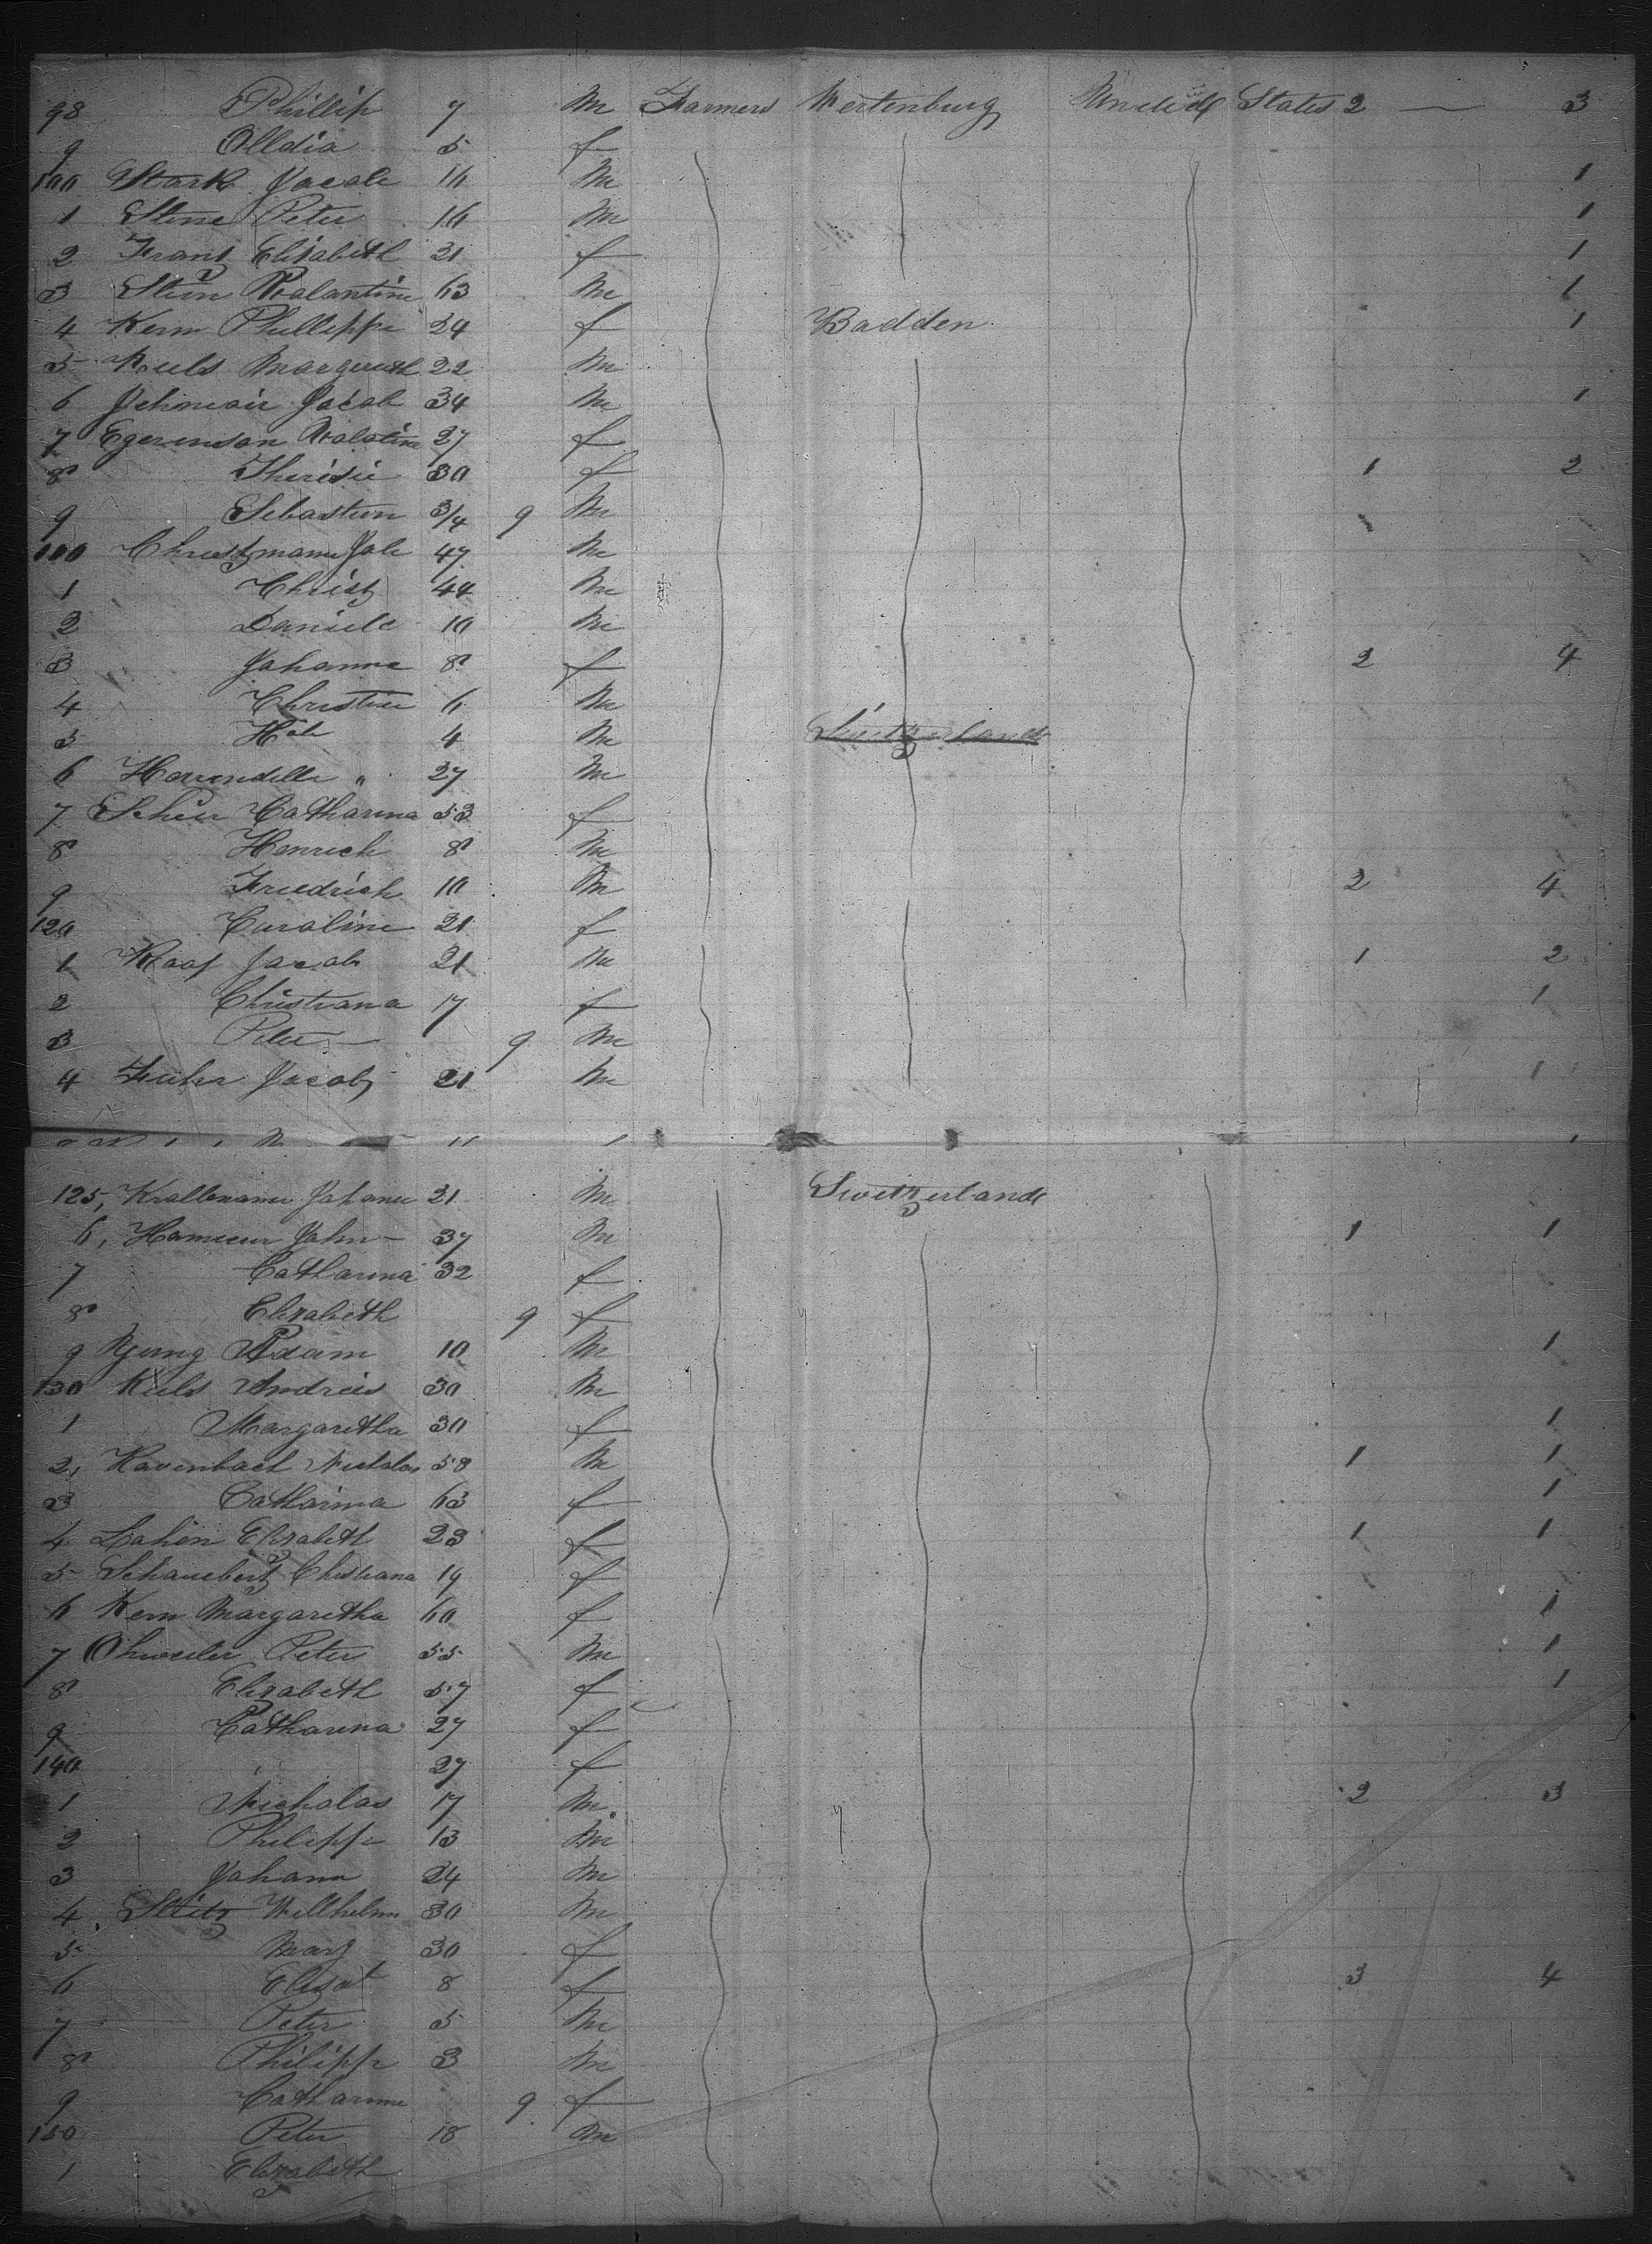 98 Phillip 7 m Farmers Wertenburg United States 2 — 3
9 Olldia 5 f
100 Stark Jacob 16 m 1
1 Stine Peter 16 m 1
2 Franz Elisabeth 21 f 1
3 Stein Valantine 63 m 1
4 Kerm Phillippe 24 f Badden 1
5 Kuls Margareth 22 m
6 Jehmair Jacob 34 m 1
7 Egerenson Valatine 27 f
8 Theresie 30 f 1 2
9 Sebastien 3/4 9 m
100 Christzmann Jab 47 m
1 Christ 44 m
2 Daniele 10 m
3 Johanne 8 f 2 4
4 Christine 6 m
5 4 m Switzerlande
6 Herrendelle " 27 m
7 Scheir Catharina 53 f
8 Henrich 8 m
9 Friedrich 10 m 2 4
120 Caroline 21 f
1 Raaf Jacob 21 m 1 2
2 Christiana 17 f 1
3 Peter — 9 m
4 Fuhr Jacob 21 m 1
125, Krallemaner Johaner 21 m Switzerlande
6, Hameeur John — 37 m 1 1
7 Catharina 32 f
8 Elizabeth 9 f
9 Njung Adam 10 m 1
130 Kuls Andreis 30 m
1 Margaretha 30 f 1
2, Kavenbach Nicholas 58 m 1 1
3 Catharina 63 f 1
4 Lahen Elizabeth 23 f 1 1
5 Schauebert Christiana 19 f
6 Kern Margaretha 60 f 1
7 Ohweiler Peter 55 m 1
8 Elizabeth 57 f 1
9 Catharina 27 f
140 27 f
1 Nicholas 17 m 2 3
2 Philipp 13 m
3 Johann 24 m
4 Stitz Willhelm 30 m
5 Marg 30 f
6 Elisat 8 f 3 4
7 Peter 5 m
8 Philipp 3 m
9 Catharine 9 f
150 Peter 18 m
1 Elizabeth